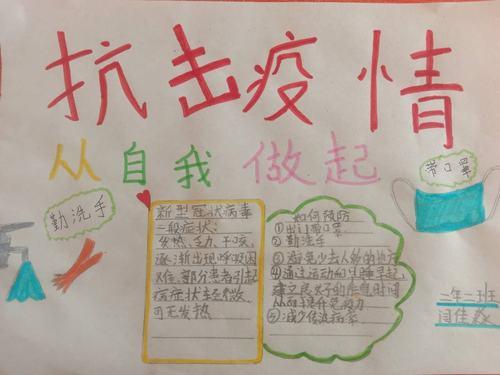 抗击疫情
从自我做起
带口罩
勤洗手
新型冠状病毒
一般症状:
发热、乏力、干咳、
逐渐出现呼吸困
难、部分患者引起
病症状轻微,
可无发热
如何预防
①出门带口罩
②勤洗手
③避免少去人多的地方
④通过运动早睡早起,
建立良好的作息时间
从而提升免疫力
⑤减少传染病案
二年二班
闫佳